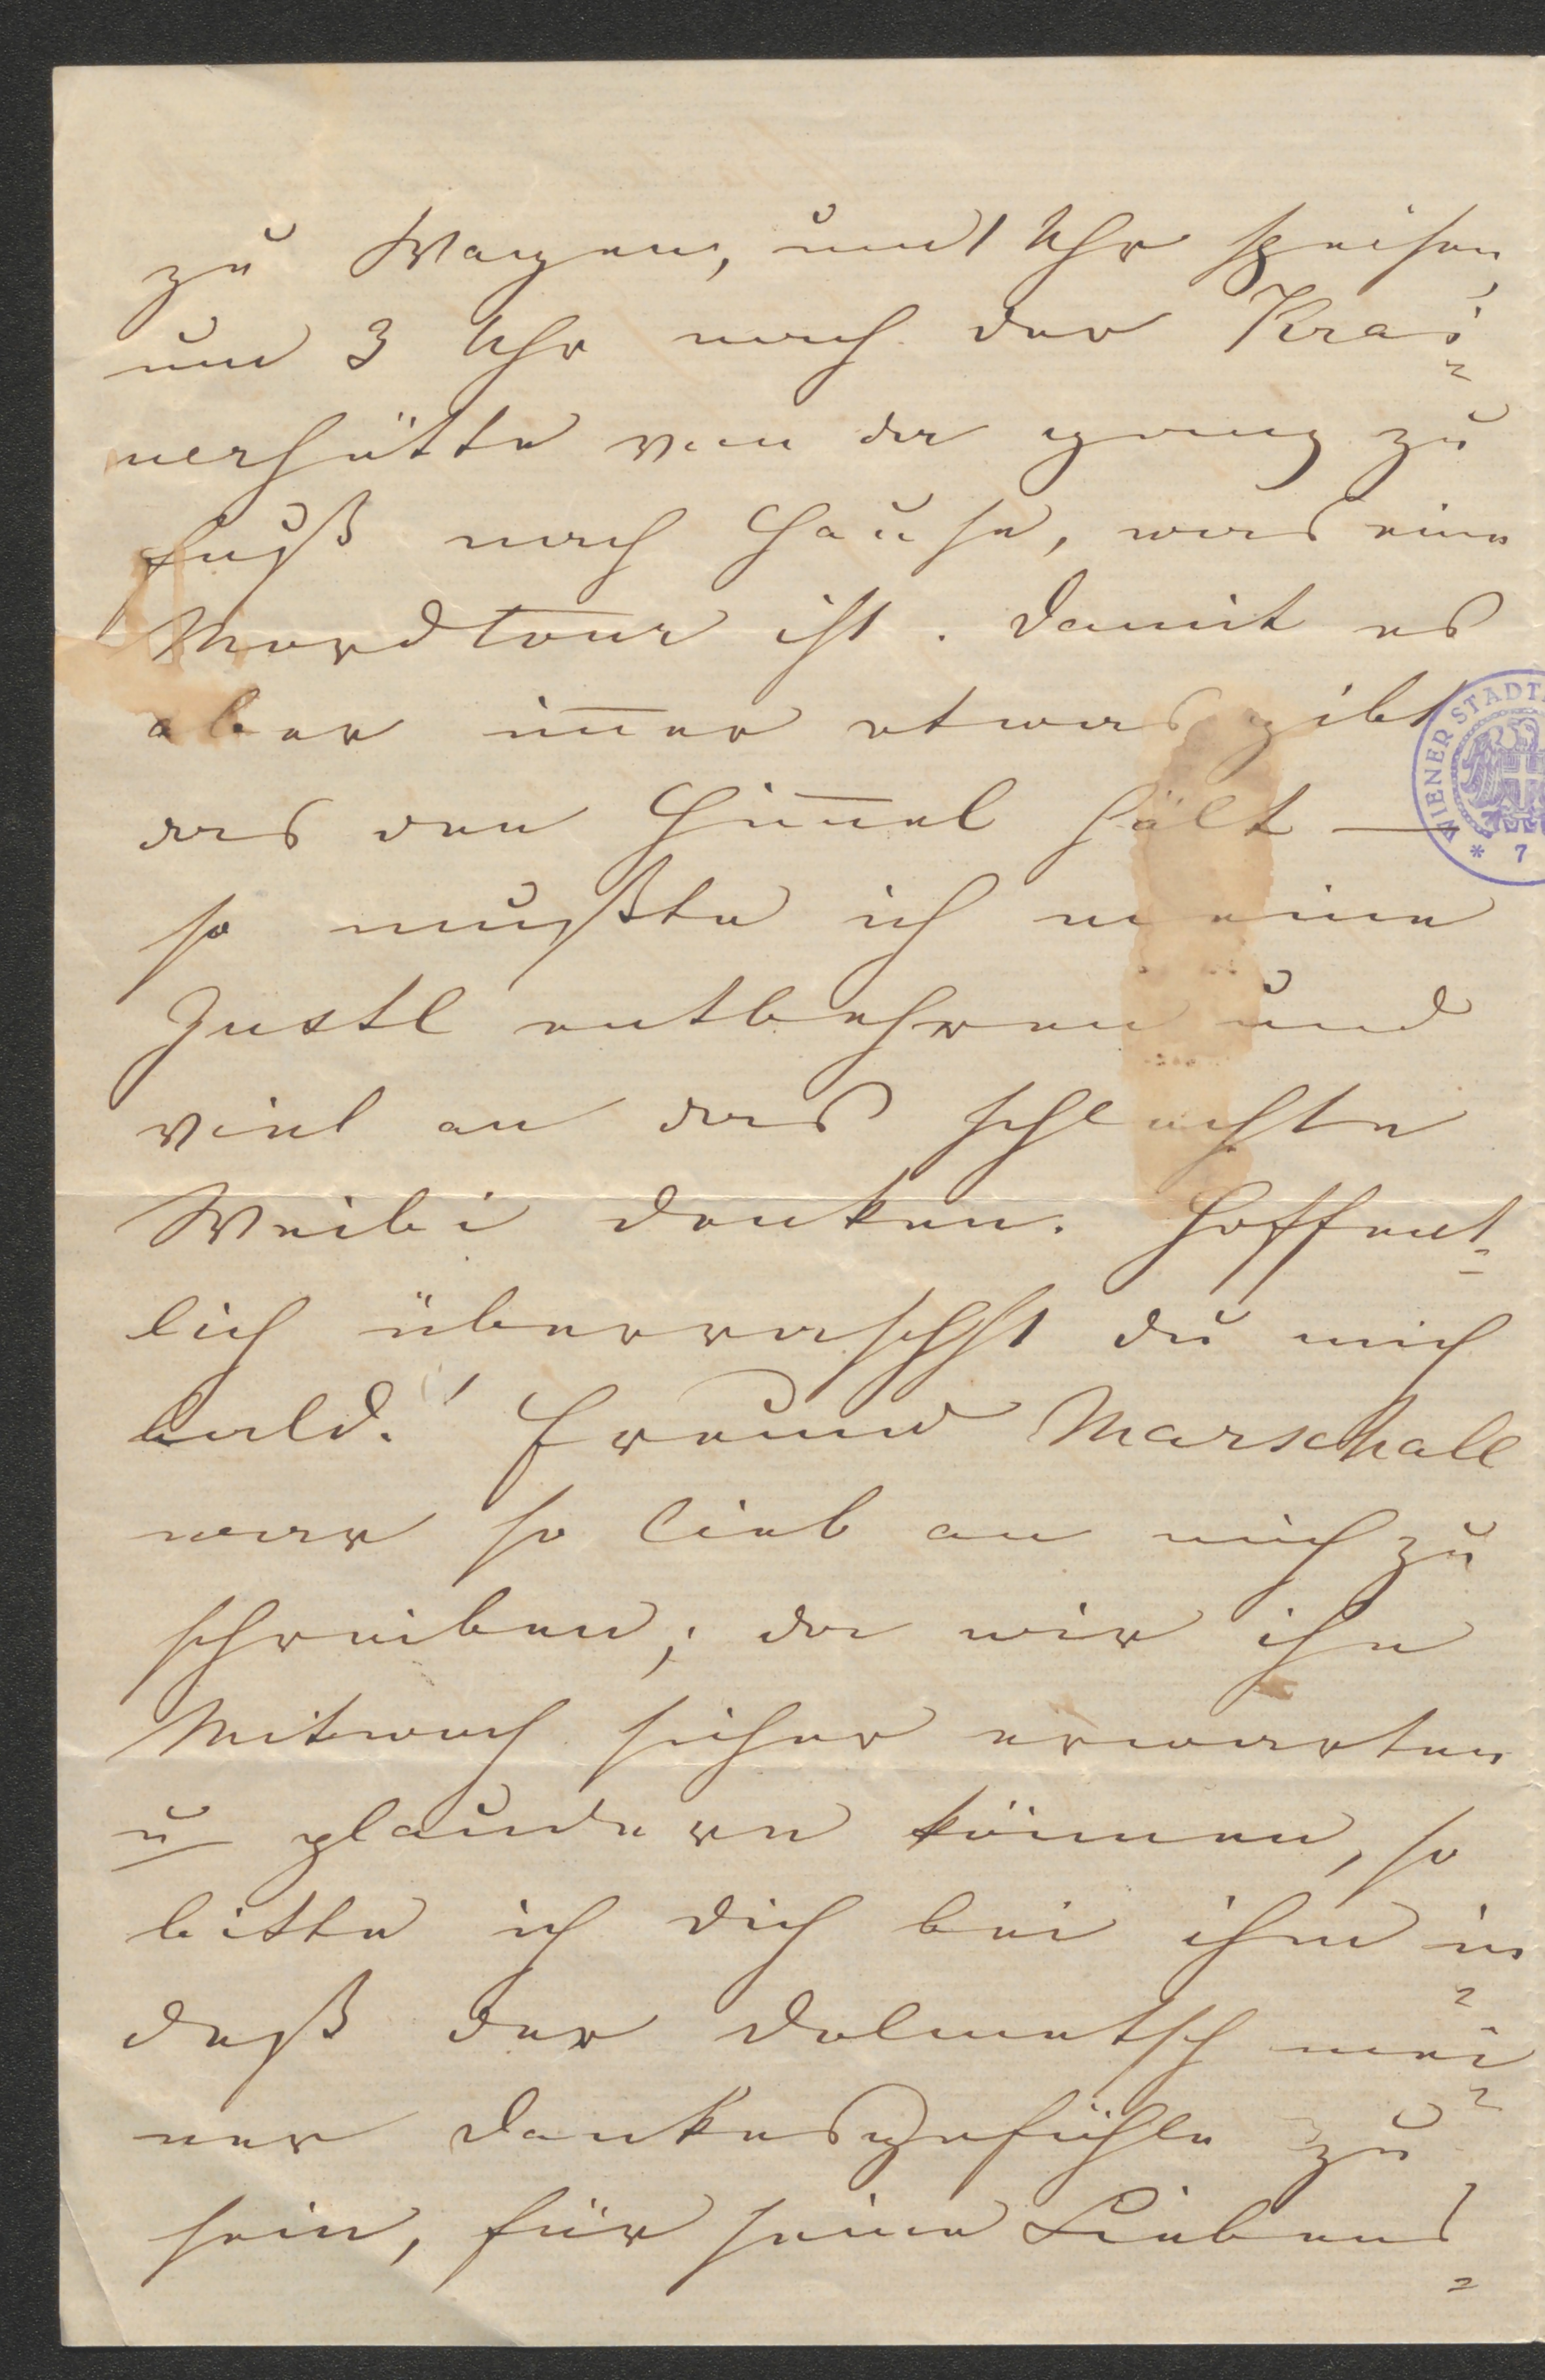 zu Wagen, um 1 Uhr speisen,
um 3 Uhr nach der Krai=
nerhütte von da ganz zu
Fuß nach Hause, was eine
Mordtour ist. Damit es
aber im̅er etwas gibt
das den Him̅el hält —
so mußte ich meine
Justl entbehren und
viel an das schlechte
Weibi denken. Hoffent=
lich überraschst du mich
bald! Freund Marschall
war so lieb an mich zu
schreiben; da wir ihn
Mitwoch sicher erwarten
u plaudern können, so
bitte ich dich bei ihm in=
deß der Dolmetsch mei=
ner Dankesgefühle zu
sein, für seine Liebens=
WIENER STADT
* 7